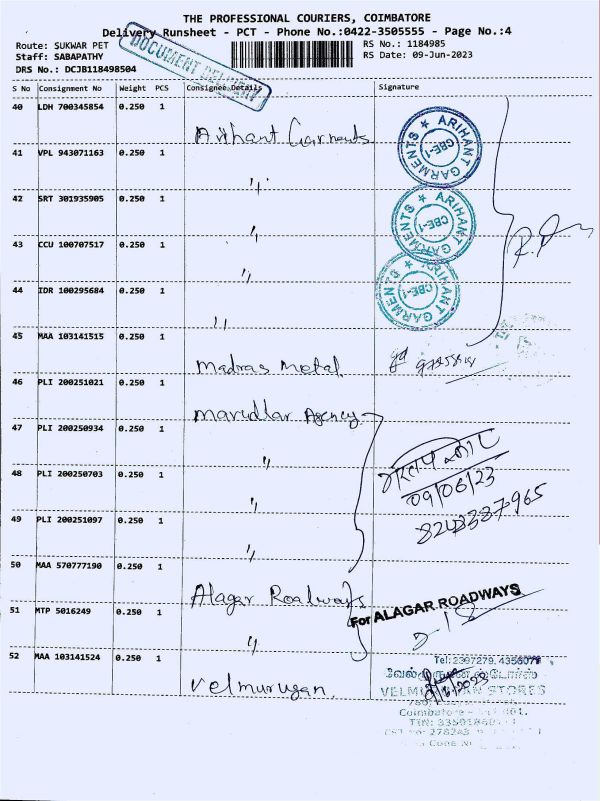 THE PROFESSIONAL COURIERS, COIMBATORE
Delivery Runsheet - PCT - Phone No.:0422-3505555 - Page No.:4
DOCUMENT DELIVERY
Route: SUKWAR PET
RS No.: 1184985
Staff: SABAPATHY
RS Date: 09-Jun-2023
DRS No.: DCJB118498504
S No Consignment No Weight PCS Consignee Details Signature
40 LDH 700345854 0.250 1
Arihant Garments
ARIHANT GARMENTS ★ CBE-1
41 VPL 943071163 0.250 1
"
42 SRT 301935905 0.250 1
"
ARIHANT GARMENTS ★ CBE-1
43 CCU 100707517 0.250 1
"
44 IDR 100295684 0.250 1
"
ARIHANT GARMENTS ★ CBE-1
45 MAA 103141515 0.250 1
Madras Metal
46 PLI 200251021 0.250 1
Marudhar Agency
47 PLI 200250934 0.250 1
"
48 PLI 200250703 0.250 1
"
09/06/23
49 PLI 200251097 0.250 1
"
50 MAA 570777190 0.250 1
Alagar Roadways
For ALAGAR ROADWAYS
51 MTP 5016249 0.250 1
"
52 MAA 103141524 0.250 1
Velmurugan
Tel: 2397279, 4356071
வேல்முருகன் ஸ்டோர்ஸ்
VELMURUGAN STORES
Coimbatore
TIN:
CST No: 278243
Code No